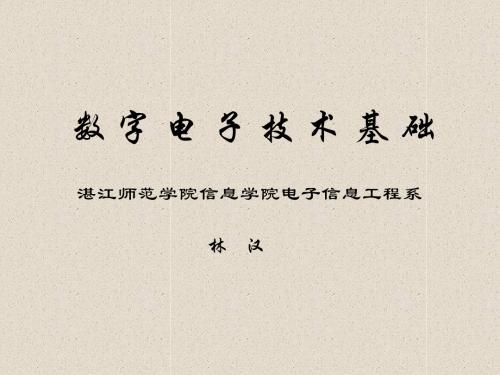 数字电子技术基础
湛江师范学院信息学院电子信息工程系
林 汉